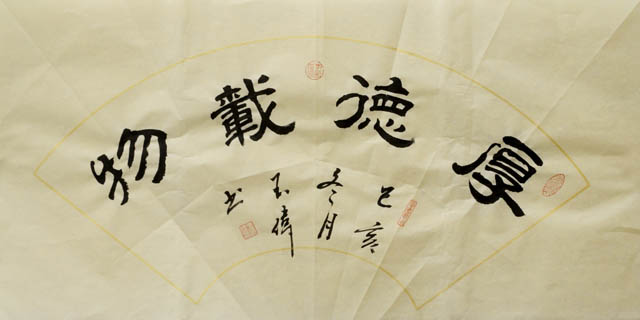 厚德載物
己亥
冬月
玉偉
书